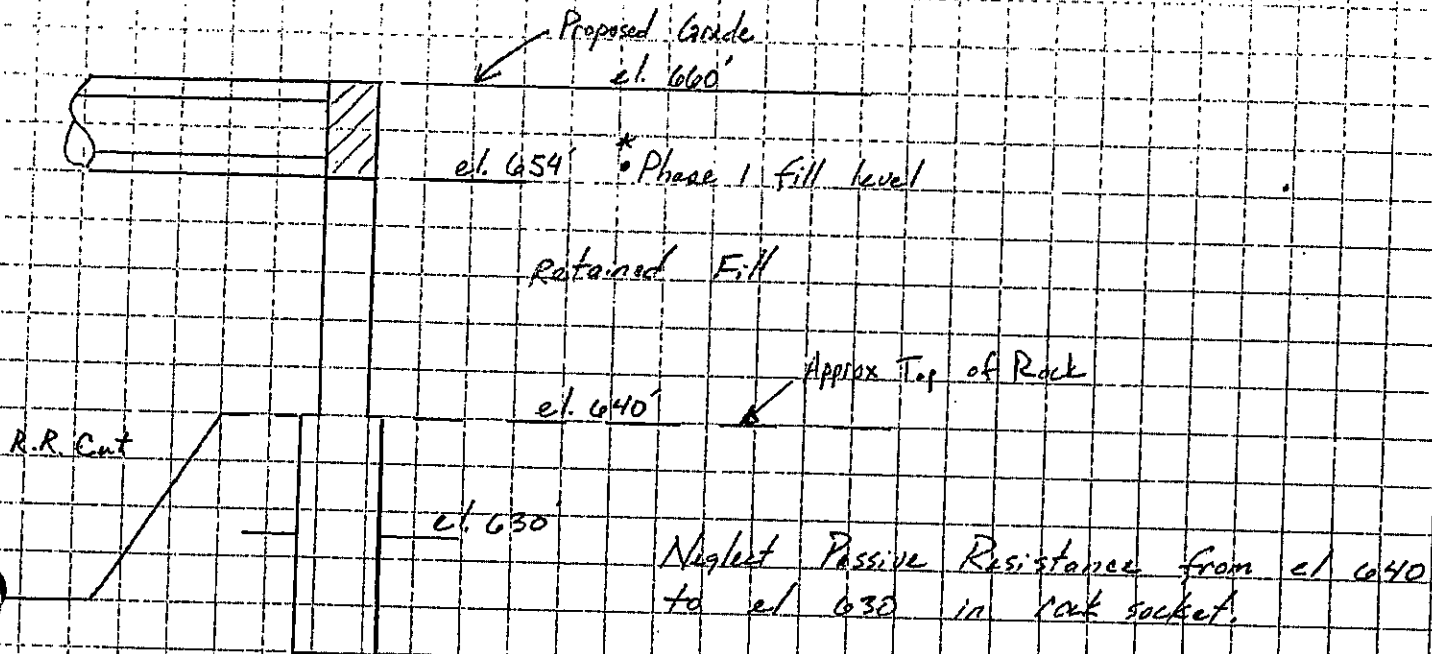 Proposed Grade
el. 660'
el. 654'
* Phase 1 fill level
Retained Fill
Approx Top of Rock
el. 640'
R.R. Cut
el. 630'
Neglect Passive Resistance from el 640
to el 630 in rock socket.